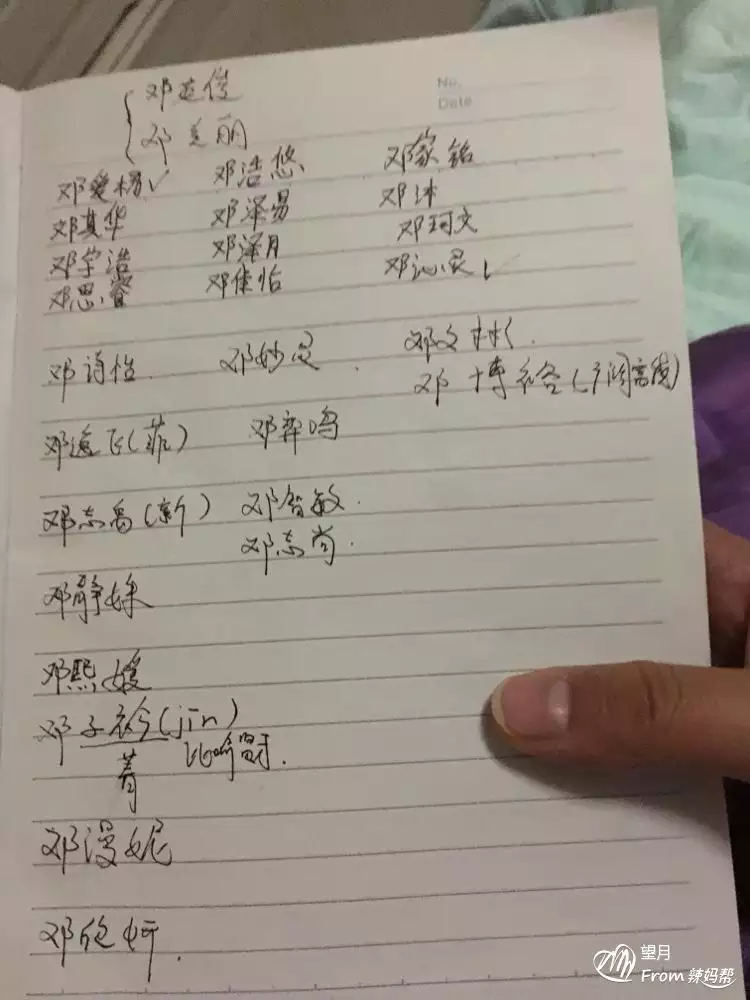 No.
Date
邓世俊
邓美丽
邓爱楠✓ 邓浩悠 邓家铭
邓其华 邓泽易 邓沐
邓学浩 邓泽月 邓珂文
邓思睿 邓佳怡 邓沁灵✓
邓诗怡 邓妙灵 邓文彬
邓博(广阔高茂)
邓逸飞(菲) 邓弈鸣
邓志禹(新) 邓智敏
邓志尚
邓静姝
邓熙媛
邓子衿(jīn)
菁 比喻贤
邓漫妮
邓欣妍
望月
From 辣妈帮